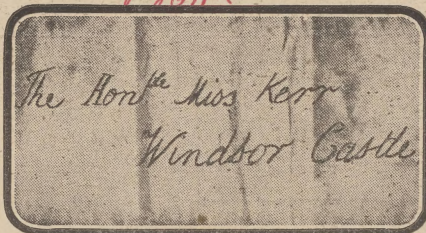 The Hon^ble Miss Kerr
Windsor Castle